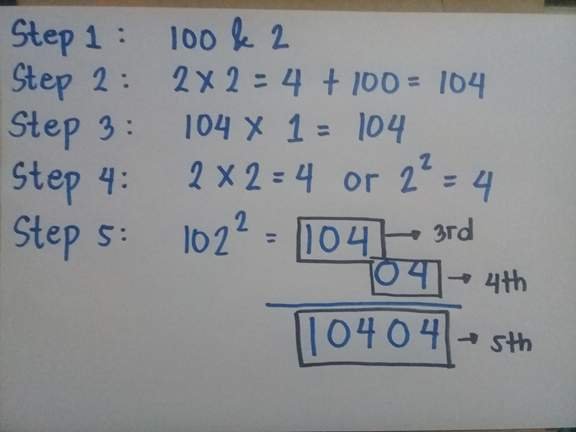 Step 1: 100 & 2
Step 2: 2 x 2 = 4 + 100 = 104
Step 3: 104 x 1 = 104
Step 4: 2 x 2 = 4 or 2² = 4
Step 5: 102² = 104 → 3rd
04 → 4th
10404 → 5th